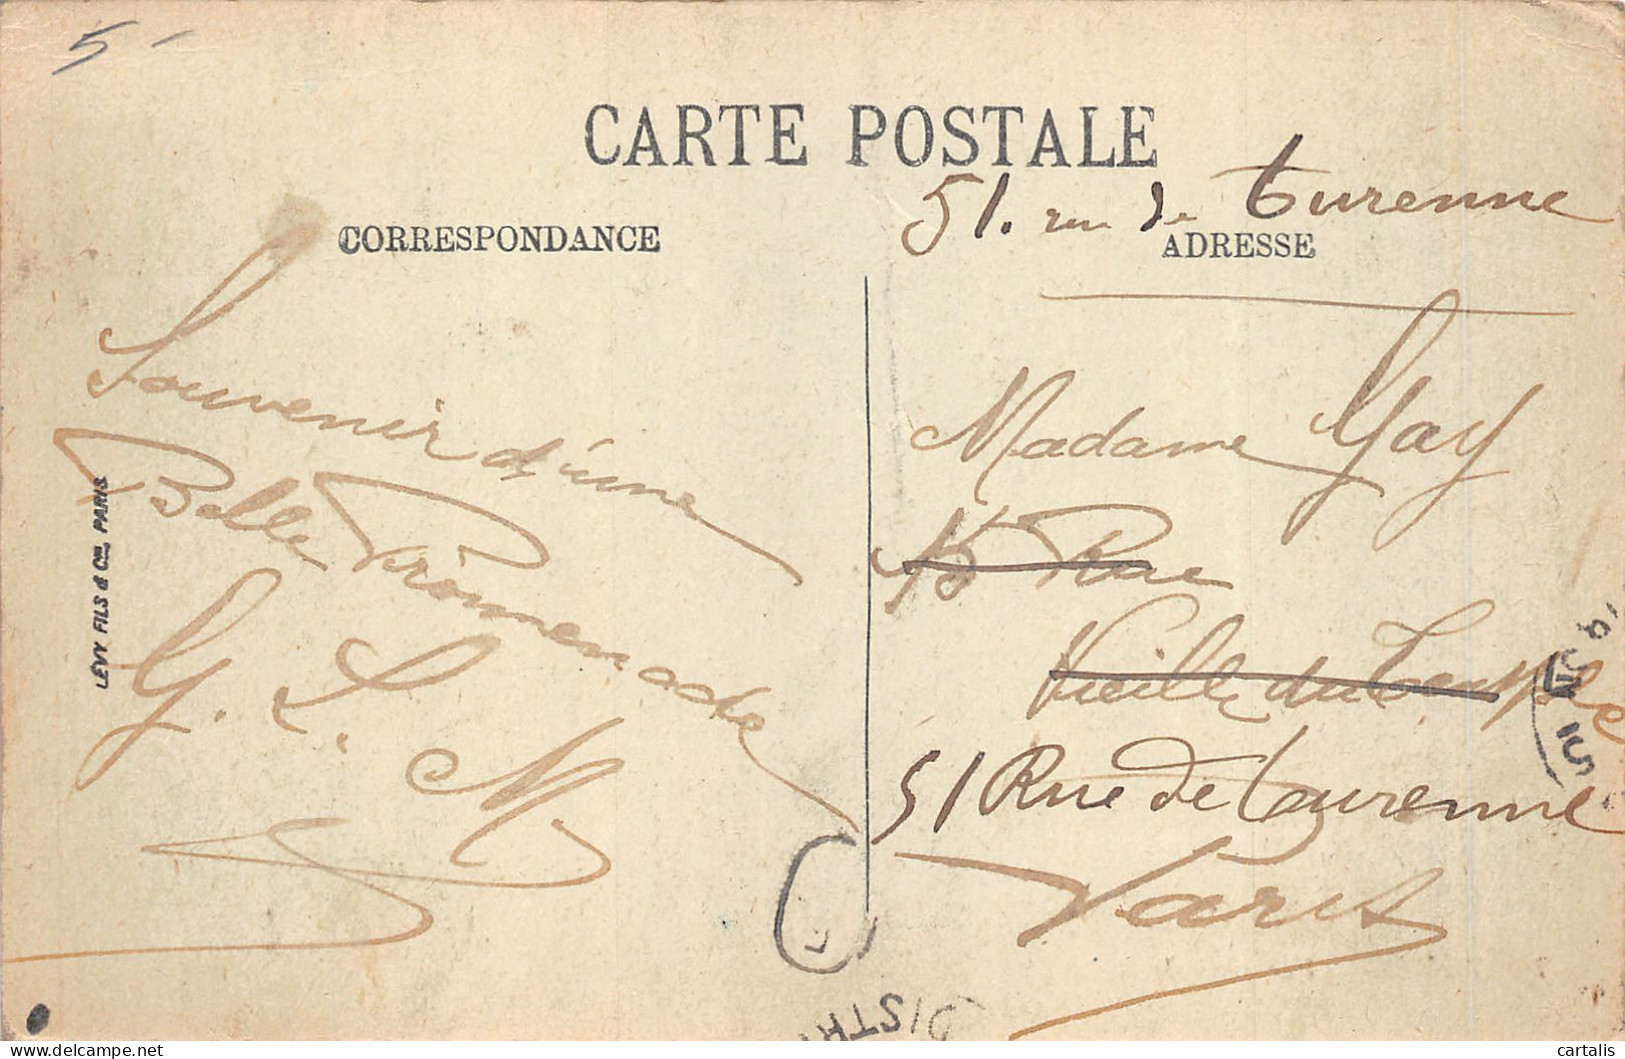 5-
CARTE POSTALE
51. rue de Turenne
CORRESPONDANCE
ADRESSE
Souvenir d'une
Belle Promenade
G. L. M
LÉVY FILS & Cie, PARIS
Madame Gay
Rue
Vieille du Temple
51 Rue de Turenne
Paris
DISTR
cartalis